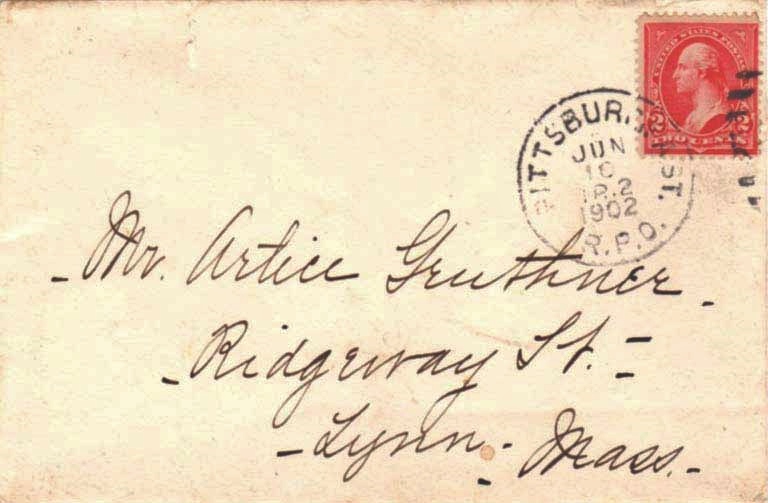 UNITED STATES POSTAGE
2 TWO CENTS 2
PITTSBURG ST.
JUN
TR.2
1902
R.P.O.
Mr. Artice Gruthner
Ridgeway St.
Lynn. Mass.